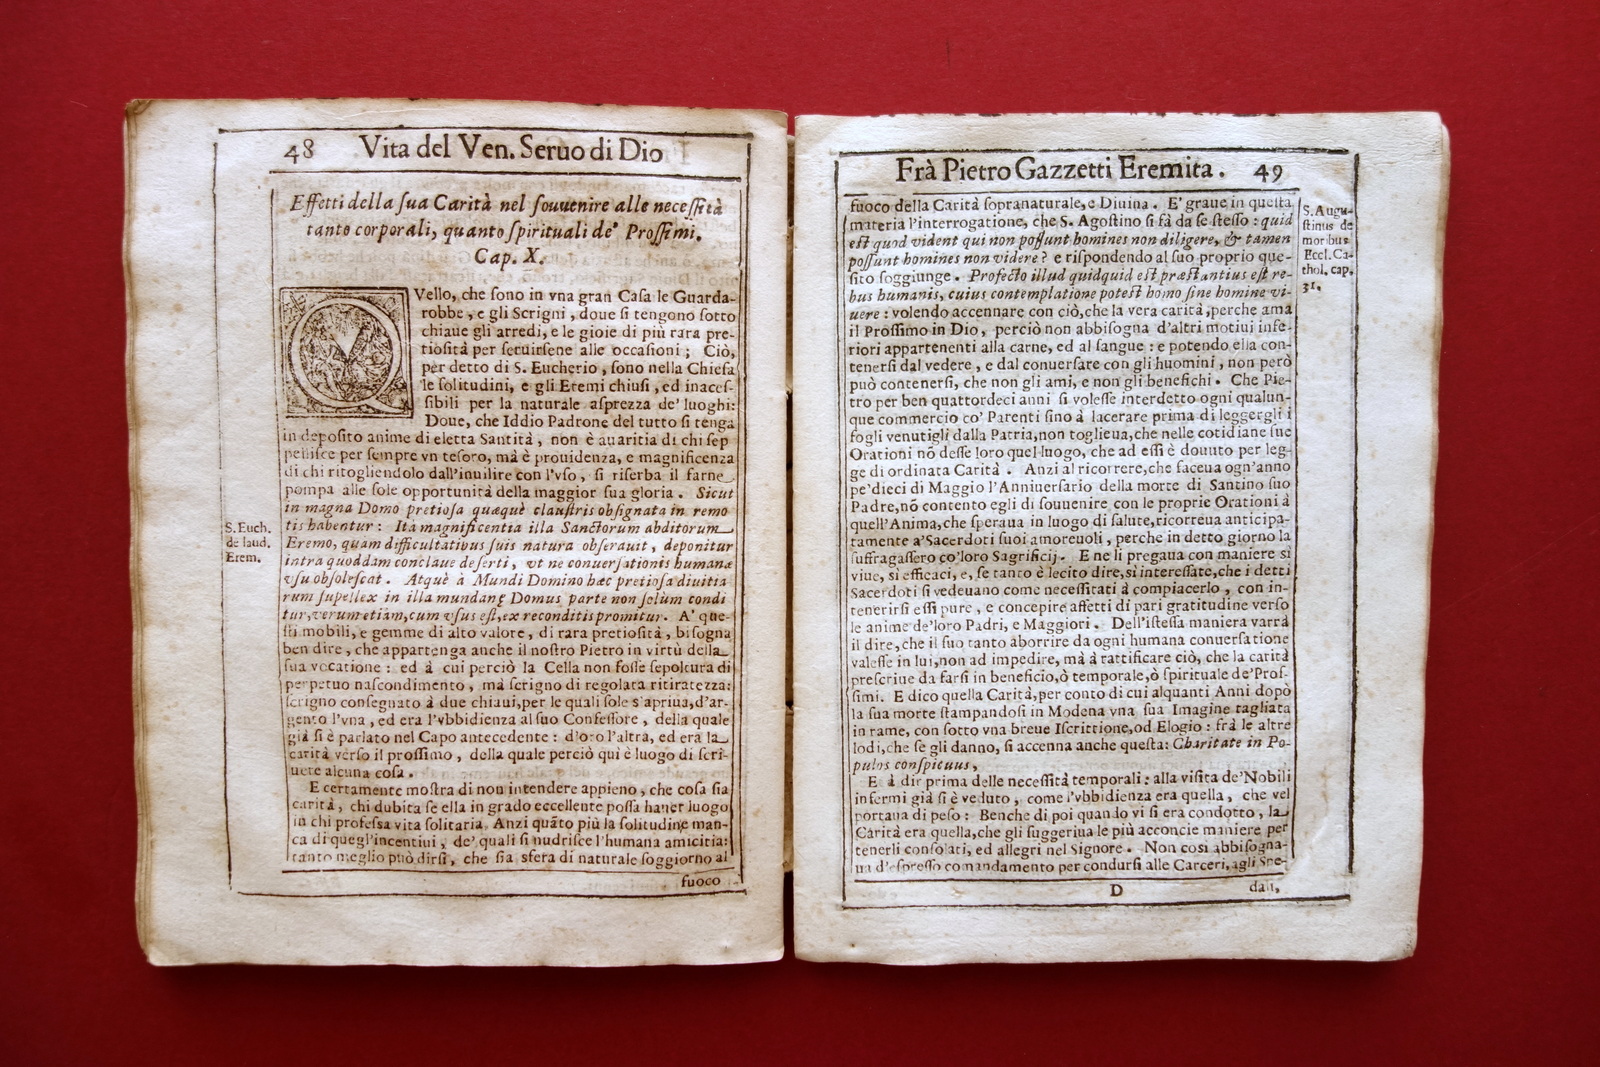 48 Vita del Ven. Seruo di Dio
Effetti della ſua Carità nel ſouuenire alle neceſſità
tanto corporali, quanto ſpirituali de' Proſſimi.
Cap. X.
QVello, che ſono in vna gran Caſa le Guarda-
robbe, e gli Scrigni, doue ſi tengono ſotto
chiaue gli arredi, e le gioie di più rara pre-
tioſità per ſeruirſene alle occaſioni; Ciò,
per detto di S. Eucherio, ſono nella Chieſa
le ſolitudini, e gli Eremi chiuſi, ed inacceſ-
ſibili per la naturale aſprezza de' luoghi:
Doue, che Iddio Padrone del tutto ſi tenga
in depoſito anime di eletta Santità, non è auaritia di chi ſep
pelliſce per ſempre vn teſoro, mà è prouidenza, e magnificenza
di chi ritogliendolo dall'inuilire con l'vſo, ſi riſerba il farne
pompa alle ſole opportunità della maggior ſua gloria. Sicut
in magna Domo pretioſa quæquè clauſtris obſignata in remo
tis habentur: Ità magnificentia illa Sanctorum abditorum
Eremo, quam difficultatibus ſuis natura obſerauit, deponitur
intra quoddam conclaue deſerti, vt ne conuerſationis humanæ
vſu obſoleſcat. Atquè à Mundi Domino hæc pretioſa diuitia
rum ſupellex in illa mundanę Domus parte non ſolùm condi
tur, verum etiàm, cum vſus eſt, ex reconditis promitur. A' que-
ſti mobili, e gemme di alto valore, di rara pretioſità, biſogna
ben dire, che appartenga anche il noſtro Pietro in virtù della
ſua vocatione: ed à cui perciò la Cella non foſſe ſepoltura di
perpetuo naſcondimento, mà ſcrigno di regolata ritiratezza:
ſcrigno conſegnato à due chiaui, per le quali ſole s'apriua, d'ar-
gento l'vna, ed era l'vbbidienza al ſuo Confeſſore, della quale
già ſi è parlato nel Capo antecedente: d'oro l'altra, ed era la
carità verſo il proſſimo, della quale perciò qui è luogo di ſcri-
uere alcuna coſa.
E certamente moſtra di non intendere appieno, che coſa ſia
carità, chi dubita ſe ella in grado eccellente poſſa hauer luogo
in chi profeſſa vita ſolitaria. Anzi quãto più la ſolitudine man-
ca di quegl'incentiui, de' quali ſi nudriſce l'humana amicitia:
tanto meglio può dirſi, che ſia sfera di naturale ſoggiorno al
fuoco
S. Euch.
de laud.
Erem.
Frà Pietro Gazzetti Eremita. 49
fuoco della Carità ſopranaturale, e Diuina. E' graue in queſta
materia l'interrogatione, che S. Agoſtino ſi fà da ſe ſteſſo: quid
eſt quod vident qui non poſſunt homines non diligere, & tamen
poſſunt homines non videre? e riſpondendo al ſuo proprio que-
ſito ſoggiunge. Profectò illud quidquid eſt præſtantius eſt re-
bus humanis, cuius contemplatione poteſt homo ſine homine vi-
uere: volendo accennare con ciò, che la vera carità, perche ama
il Proſſimo in Dio, perciò non abbiſogna d'altri motiui infe-
riori appartenenti alla carne, ed al ſangue: e potendo ella con-
tenerſi dal vedere, e dal conuerſare con gli huomini, non però
può contenerſi, che non gli ami, e non gli benefichi. Che Pie-
tro per ben quattordeci anni ſi voleſſe interdetto ogni qualun-
que commercio co' Parenti ſino à lacerare prima di leggergli i
fogli venutigli dalla Patria, non toglieua, che nelle cotidiane ſue
Orationi nõ deſſe loro quel luogo, che ad eſſi è douuto per leg-
ge di ordinata Carità. Anzi al ricorrere, che faceua ogn'anno
pe'dieci di Maggio l'Anniuerſario della morte di Santino ſuo
Padre, nõ contento egli di ſouuenire con le proprie Orationi à
quell'Anima, che ſperaua in luogo di ſalute, ricorreua anticipa-
tamente a'Sacerdoti ſuoi amoreuoli, perche in detto giorno la
ſuffragaſſero co'loro Sagrificij. E ne li pregaua con maniere sì
viue, sì efficaci, e, ſe tanto è lecito dire, sì intereſſate, che i detti
Sacerdoti ſi vedeuano come neceſſitati à compiacerlo, con in-
tenerirſi eſſi pure, e concepire affetti di pari gratitudine verſo
le anime de'loro Padri, e Maggiori. Dell'iſteſſa maniera varrà
il dire, che il ſuo tanto aborrire da ogni humana conuerſatione
valeſſe in lui, non ad impedire, mà à rattificare ciò, che la carità
preſcriue da farſi in beneficio, ò temporale, ò ſpirituale de'Proſ-
ſimi. E dico quella Carità, per conto di cui alquanti Anni dopò
la ſua morte ſtampandoſi in Modena vna ſua Imagine tagliata
in rame, con ſotto vna breue Iſcrittione, od Elogio: frà le altre
lodi, che ſe gli danno, ſi accenna anche queſta: Charitate in Po-
pulos conſpicuus,
E à dir prima delle neceſſità temporali: alla viſita de'Nobili
infermi già ſi è veduto, come l'vbbidienza era quella, che vel
portaua di peſo: Benche di poi quando vi ſi era condotto, la
Carità era quella, che gli ſuggeriua le più acconcie maniere per
tenerli conſolati, ed allegri nel Signore. Non così abbiſogna-
ua d'eſpreſſo comandamento per condurſi alle Carceri, agli Spe-
D dali,
S. Augu-
ſtinus de
moribus
Eccl. Ca-
thol. cap.
31.